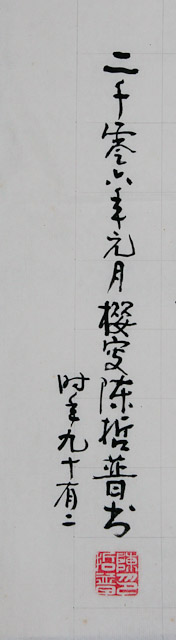 二千零六年元月樱叟陈哲普书
时年九十有二